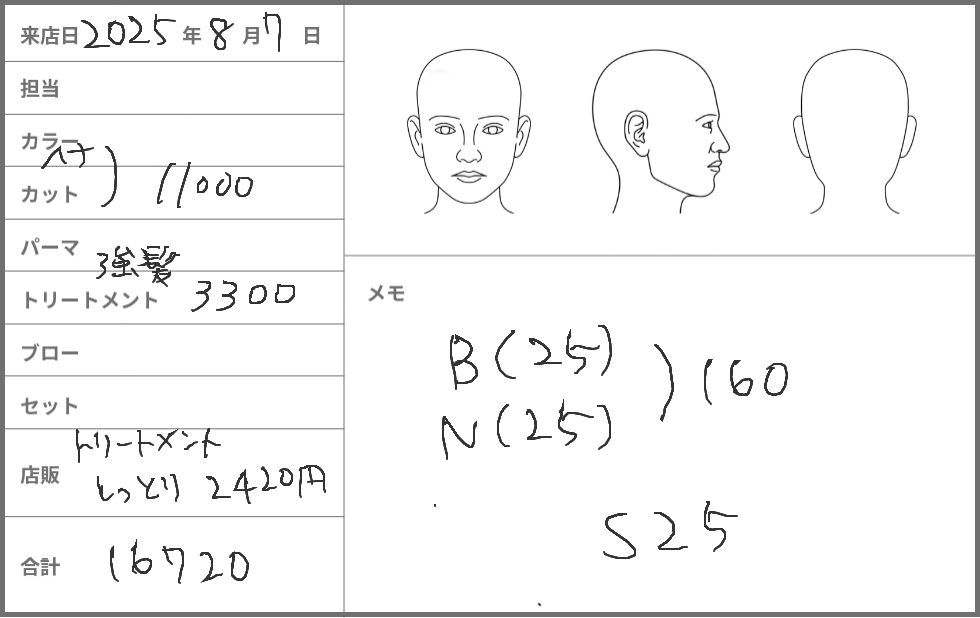 来店日 2025 年 8 月 7 日
担当
カラー
カット ) 11000
パーマ
強髪
トリートメント 3300
ブロー
セット
トリートメント
店販 しっとり 2420円
合計 16720
メモ
B (25)
N (25) ) 160
S 25